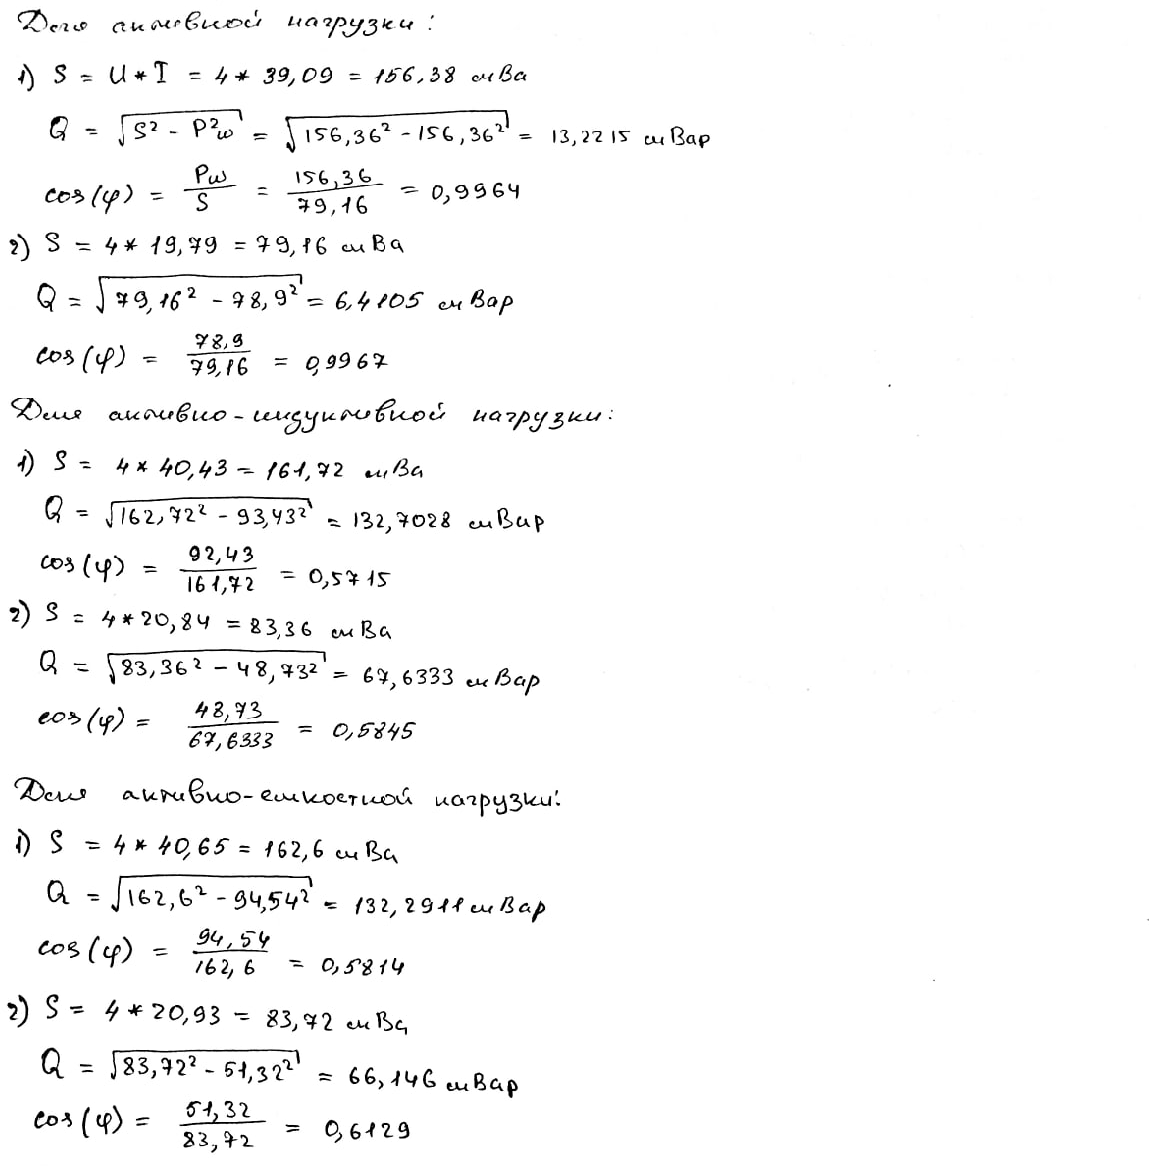 Для активной нагрузки:
1) S = U * I = 4 * 39,09 = 156,38 мВа
Q = √(S² - P²w) = √(156,36² - 156,36²) = 13,2215 мВар
cos(φ) = Pw/S = 156,36/79,16 = 0,9964
2) S = 4 * 19,79 = 79,16 мВа
Q = √(79,16² - 78,9²) = 6,4105 мВар
cos(φ) = 78,9/79,16 = 0,9967
Для активно-индуктивной нагрузки:
1) S = 4 * 40,43 = 161,72 мВа
Q = √(162,72² - 93,43²) = 132,7028 мВар
cos(φ) = 92,43/161,72 = 0,5715
2) S = 4 * 20,84 = 83,36 мВа
Q = √(83,36² - 48,73²) = 67,6333 мВар
cos(φ) = 48,73/67,6333 = 0,5845
Для активно-емкостной нагрузки:
1) S = 4 * 40,65 = 162,6 мВа
Q = √(162,6² - 94,54²) = 132,2911 мВар
cos(φ) = 94,54/162,6 = 0,5814
2) S = 4 * 20,93 = 83,72 мВа
Q = √(83,72² - 51,32²) = 66,146 мВар
cos(φ) = 51,32/83,72 = 0,6129